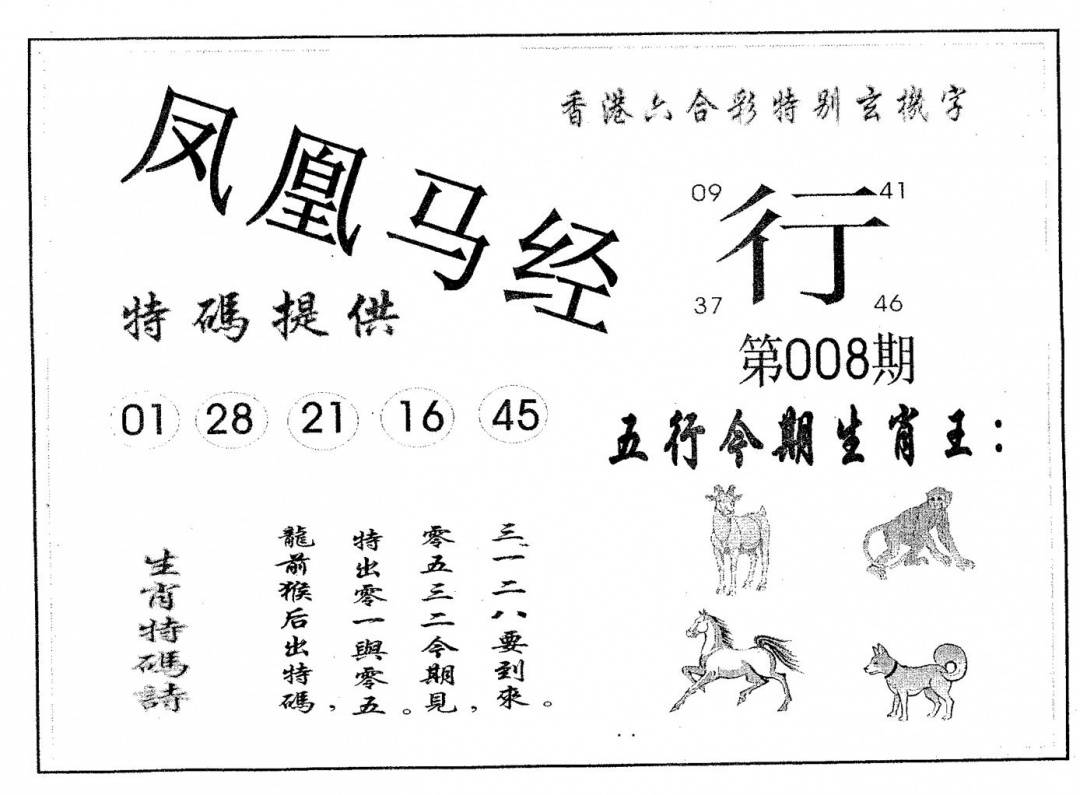 香港六合彩特别玄機字
凤凰马经
09 41
行
37 46
第008期
特碼提供
01 28 21 16 45
五行今期生肖王：
生肖特碼詩
龍前猴后出特碼，
特出零一與零五。
零五三二今期見，
三一二八要到來。